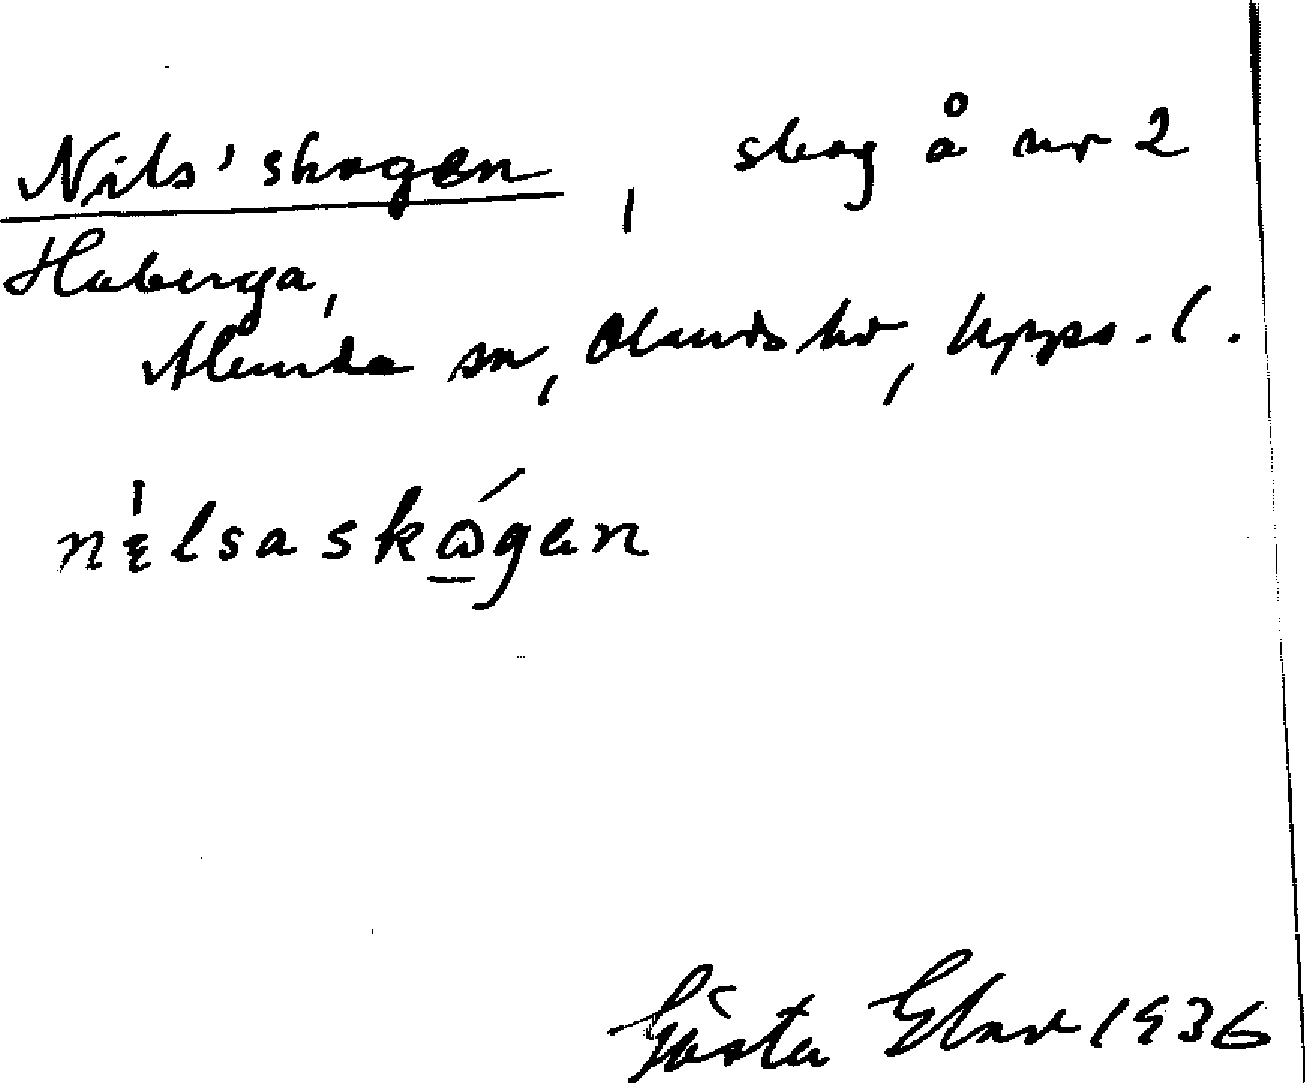 Nils' skogen, skog å nr 2
Haberga,
Alunda sn, Olands hd, Upps. l.
nilsaskogen
Gösta 1936